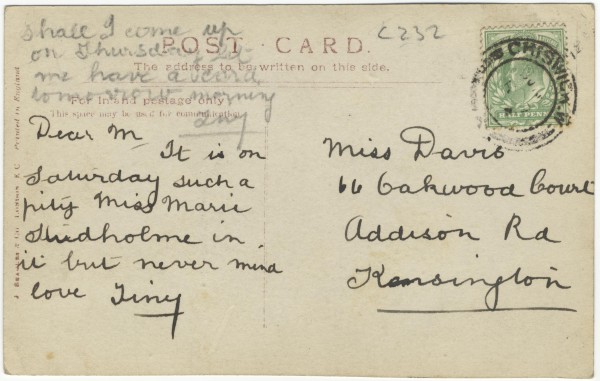 shall I come up
on Thursday let
me have a card
tomorrow morning
Tiny
C232
POST CARD.
The address to be written on this side.
For Inland postage only
This space may be used for communication
Dear M
It is on
Saturday such a
pity Miss Marie
Studholme in
it but never mind
love Tiny
Miss Davis
66 Oakwood Court
Addison Rd
Kensington
CHISWICK. W.
HALF PENNY
J. London E.C. Printed in England